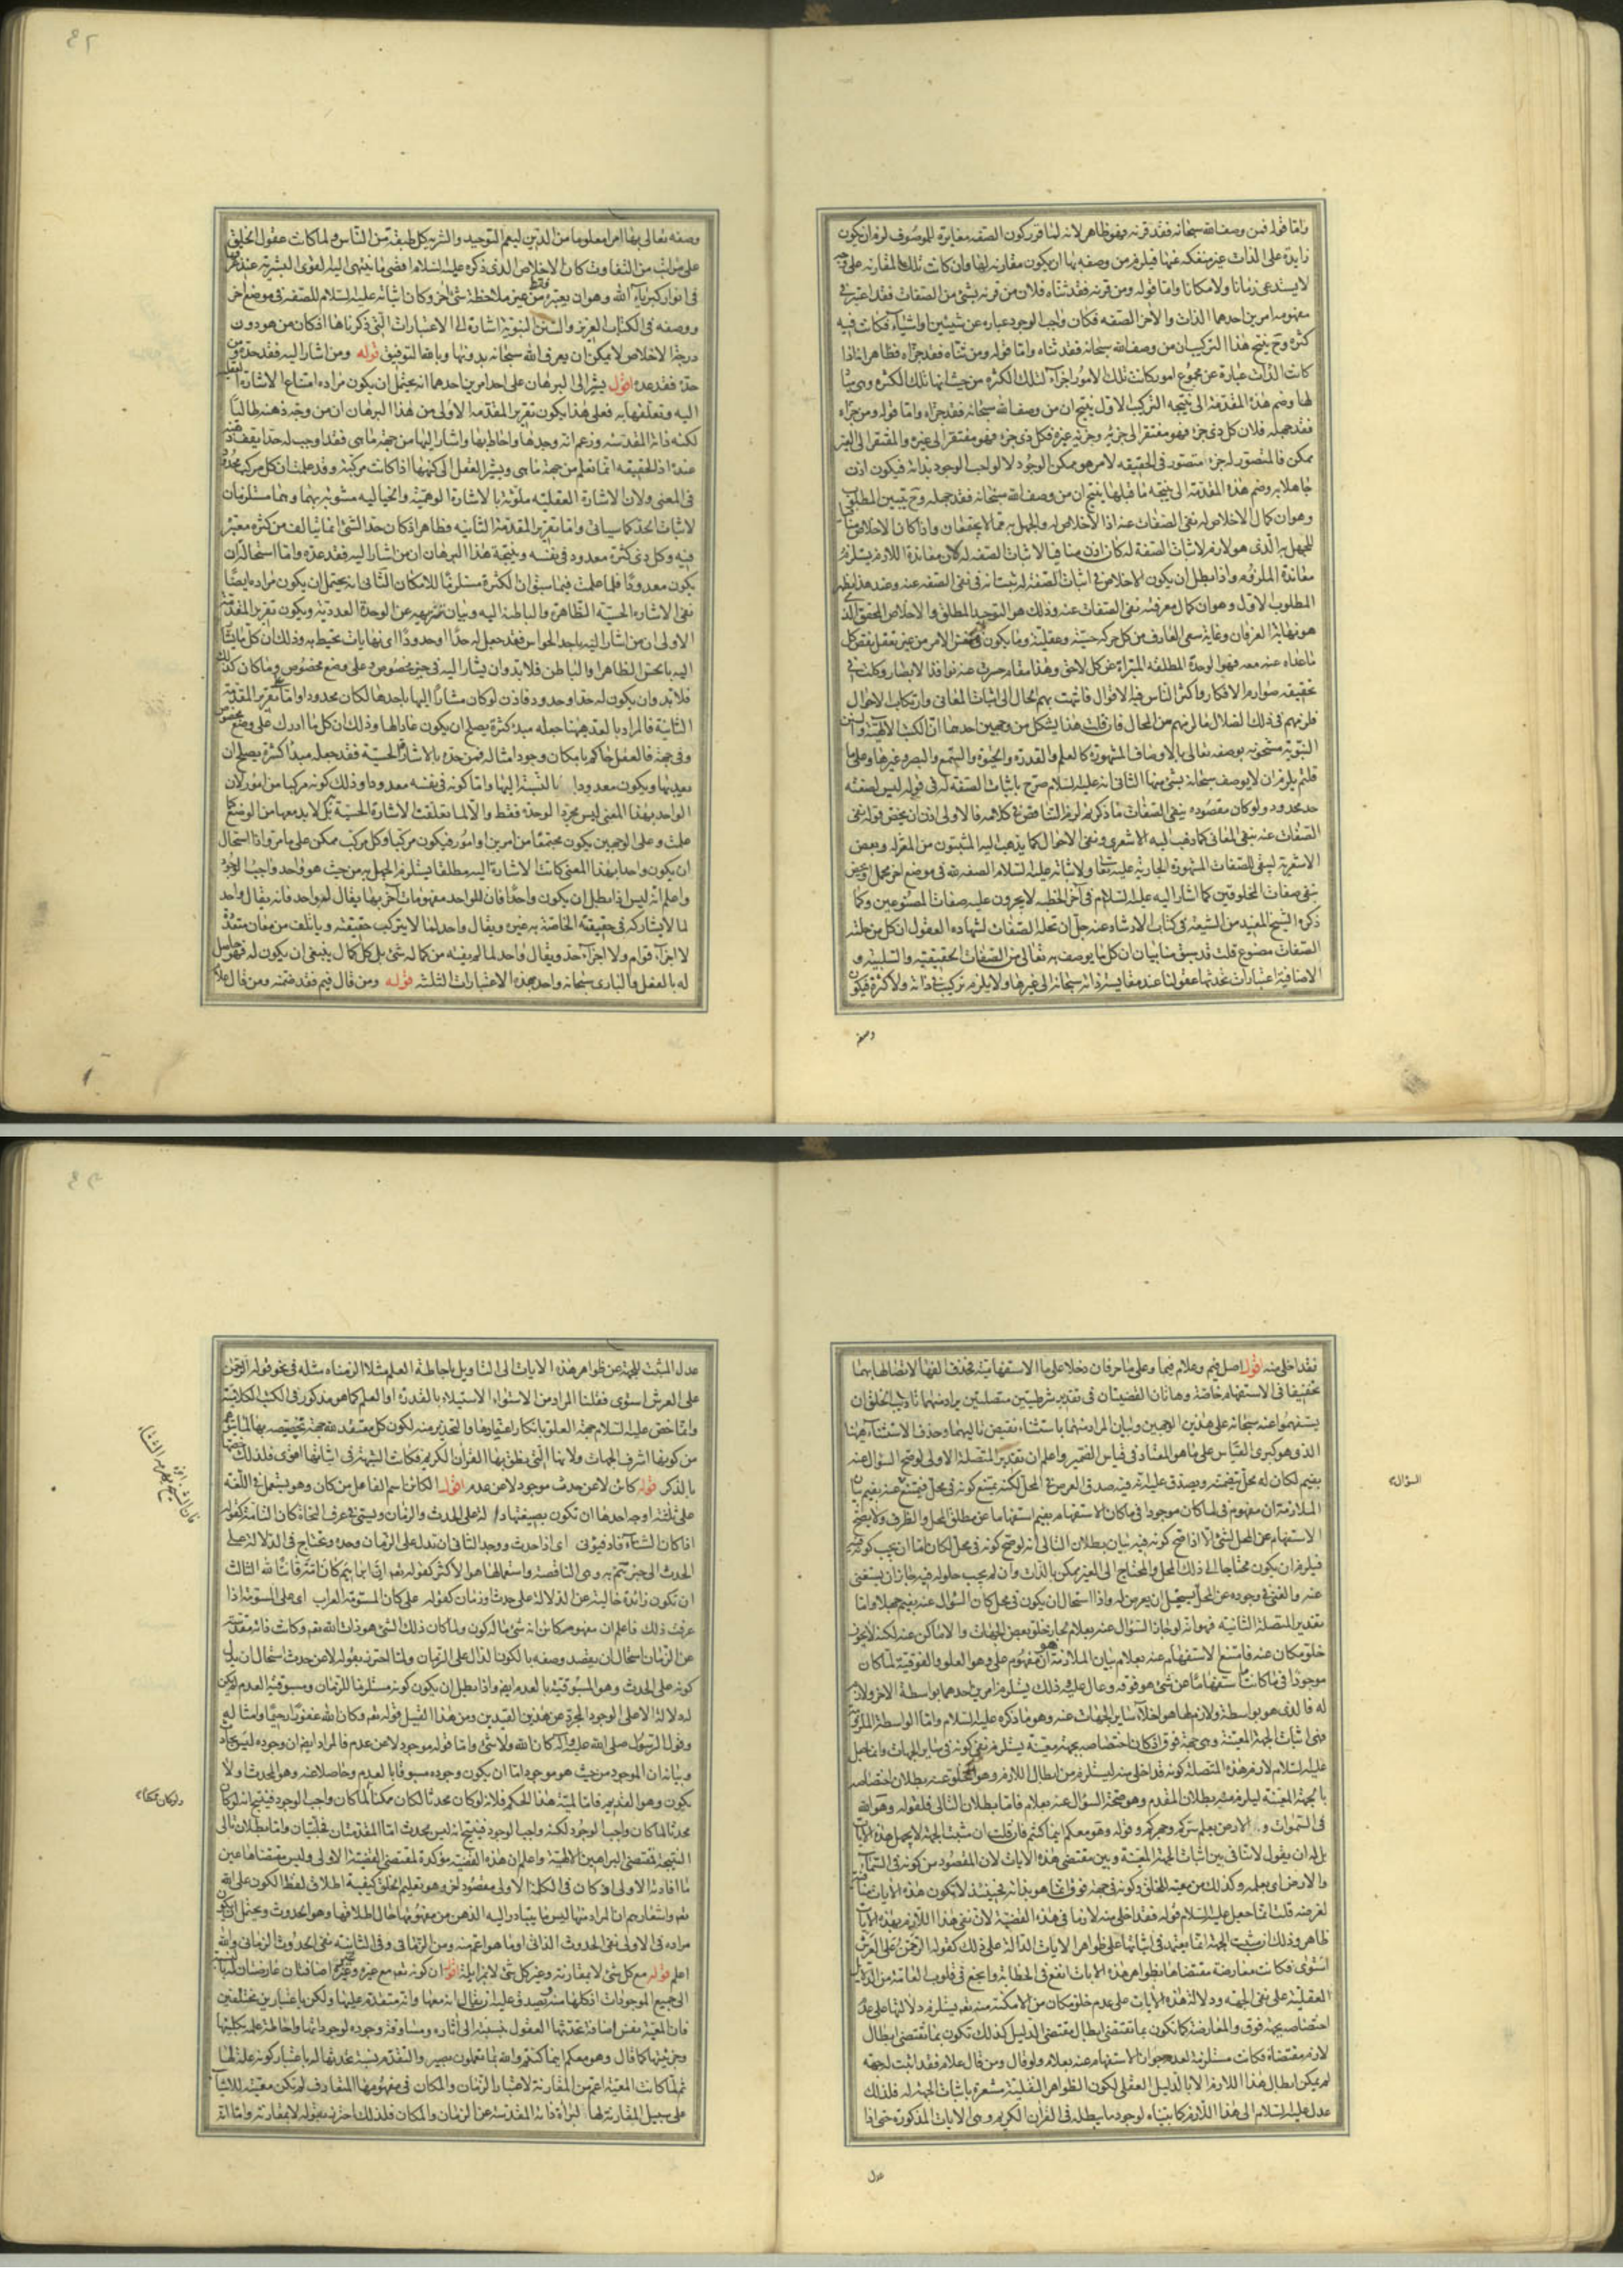 واما قوله فمن وصف الله سبحانه فقد قرنه فهو ظاهر لانه لما قرر كون الصفه مغايرة للموصوف لزم ان يكون
زايدة على الذات غير منفكه عنها فيلزم من وصفه بها ان يكون مقارنه لها وان كانت تلك المقارنه على وجه
لا يستدعى زمانا ولا مكانا واما قوله ومن قرنه فقد ثناه فلان من قرنه بشئ من الصفات فقد اعتبر فى
مفهومه امرين احدهما الذات والاخر الصفه فكان واجب الوجود عباره عن شيئين او اشياء فكانت فيه
كثرة وح ينتج هذا التركيب ان من وصف الله سبحانه فقد ثناه واما قوله ومن ثناه فقد جزاه فظاهر انه اذا
كانت الذات عبارة عن مجموع امور كانت تلك الامور اجزاء لتلك الكثرة من حيث انها تلك الكثرة وهى مبادى
لها وضم هذه المقدمة الى نتيجه التركيب الاول ينتج ان من وصف الله سبحانه فقد جزاه واما قوله ومن جزاه
فقد جهله فلان كل ذى جزء فهو مفتقر الى جزئه وجزئه غيره فكل ذى جزء فهو مفتقر الى غيره والمفتقر الى الغير
ممكن فالمتصور له جزء متصور فى الحقيقه لامر هو ممكن الوجود لا لواجب الوجود بذاته فيكون اذن
جاهلا به وضم هذه المقدمة الى نتيجه ما قبلها ينتج ان من وصف الله سبحانه فقد جهله وح يتبين المطلوب
وهو ان كمال الاخلاص له نفى الصفات عنه اذ الاخلاص له والجهل به مما لا يجتمعان واذا كان الاخلاص منافيا
للجهل به الذى هو لازم لاثبات الصفة له كان اذن منافيا لاثبات الصفه له لان معاندة اللازم يستلزم
معاندة الملزوم واذا بطل ان يكون الاخلاص فى اثبات الصفة له ثبت انه فى نفى الصفه عنه وعند هذا يظهر
المطلوب الاول وهو ان كمال معرفته نفى الصفات عنه وذلك هو التوحيد المطلق والاخلاص المحقق الذى
هو نهاية العرفان وغاية سعى العارف من كل حركه حسية وعقلية وما يكون فى نفس الامر من غير تعقل نقص كل
ما عداه عنه معه فهو الوحدة المطلقه المبراة عن كل لاحق وهذا مقام حسرت عنه نوافذ الابصار وكلت فى
تحقيقه صوارم الافكار واكثر الناس فيه الاقوال فانتهت بهم الحال الى اثبات المعانى وارتكاب الاحوال
فلزمهم فى ذلك الضلال ما لزمهم من المحال فان قلت هذا يشكل من وجهين احدهما ان الكتب الالهية والسنن
النبوية مشحونه بوصفه تعالى بالاوصاف المشهورة كالعلم والقدرة والحيوة والسمع والبصر وغيرها وعلى ما
قلتم يلزم ان لا يوصف سبحانه بشئ منها الثانى انه عليه السلام صرح باثبات الصفة له فى قوله ليس لصفته
حد محدود ولو كان مقصوده بنفى الصفات ما ذكرتم لزم التناقض فى كلامه فالاولى اذن ان يخص قوله نفى
الصفات عنه بنفى المعانى كما ذهب اليه الاشعرى ونفى الاحوال كما يذهب اليه المثبتون من المعتزله وبعض
الاشعرية ليبقى للصفات المشهورة الجاريه عليه تعالى ولاثباته عليه السلام الصفه لله فى موضع اخر محمل او يخص
بنفى صفات المخلوقين كما اشار اليه عليه السلام فى آخر الخطبه لا يجرون عليه صفات المصنوعين وكما
ذكره الشيخ المفيد من الشيعة فى كتاب الارشاد عنه جل ان تحله الصفات لشهادة العقول ان كل من حلته
الصفات مصنوع قلت قد سبق منا بيان ان كل ما يوصف به تعالى من الصفات الحقيقيه والسلبية و
الاضافية اعتبارات تحدثها عقولنا عند مقايسة ذاته سبحانه الى غيرها ولا يلزم تركيب فى ذاته ولا كثرة فيكون
وصفه
وصفه تعالى بها امرا معلوما من الدين ليعم التوحيد والتنزيه كل طبقة من الناس ولما كانت عقول الخلق
على مراتب من التفاوت كان الاخلاص الذى ذكره عليه السلام اقصى ما ينتهى اليه القوى البشرية عند غرقها
فى انوار كبرياء الله وهو ان يعتبره فقط من غير ملاحظة شئ اخر وكان اثباته عليه السلام للصفه فى موضع اخر
ووصفه فى الكتاب العزيز والسنن النبوية اشارة الى الاعتبارات التى ذكرناها اذ كان من هو دون
درجة الاخلاص لا يمكن ان يعرف الله سبحانه بدونها وبالله التوفيق قوله ومن اشار اليه فقد حده ومن
حده فقد عده اقول يشير الى البرهان على احد امرين احدهما انه يحتمل ان يكون مراده امتناع الاشارة العقلية
اليه وتعلقها به فعلى هذا يكون تقرير المقدمة الاولى من هذا البرهان ان من وجه ذهنه طالبا
لكنه ذاته المقدسه وزعم انه وجدها واحاط بها واشار اليها من جهة ما هى فقد اوجب له حدا يقف ذهنه
عنده اذ الحقيقه انما تعلم من جهة ما هى ويشير العقل الى كنهها اذا كانت مركبة وقد علمت ان كل مركب محدود
فى المعنى ولان الاشارة العقليه ملوثة بالاشارة الوهمية والخياليه مشوبه بهما وهما مستلزمان
لاثبات الحد كما سياتى واما تقرير المقدمة الثانيه فظاهر اذ كان حد الشئ انما يتالف من كثرة معتبرة
فيه وكل ذى كثرة معدود فى نفسه ونتيجة هذا البرهان ان من اشار اليه فقد عده واما استحالة ان
يكون معدودا فلما علمت فيما سبق ان الكثرة مستلزمة للامكان الثانى انه يحتمل ان يكون مراده ايضا
نفى الاشارة الحسية الظاهرة والباطنة اليه وبيان تنزيهه عن الوحدة العدديه ويكون تقرير المقدمة
الاولى ان من اشار اليه باحد الحواس فقد جعل له حدا او حدودا اى نهايات تحيط به وذلك ان كل ما يشار
اليه بالحس الظاهر او الباطن فلا بد وان يشار اليه فى حيز مخصوص وعلى وضع مخصوص وما كان كذلك
فلا بد وان يكون له حد او حدود فاذن لو كان مشارا اليها باحدها لكان محدودا واما تقرير المقدمة
الثانية فالمراد بالعد ههنا جعله مبدء كثرة يصلح ان يكون عادا لها وذلك ان كل ما ادرك على وضع مخصوص
وفى جهة فالعقل حاكم بامكان وجود امثاله فمن حده بالاشارة الحسية فقد جعله مبدأ كثرة يصلح ان
يعد بها ويكون معدودا بالنسبة اليها واما كونه فى نفسه معدودا وذلك كونه مركبا من امور لان
الواحد بهذا المعنى ليس مجرد الوحدة فقط والا لما تعلقت الاشارة الحسية به بل لا بد معها من الوضع كما
علمت وعلى الوجهين يكون مجتمعا من امرين او امور فيكون مركبا وكل مركب ممكن على ما مر واذا استحال
ان يكون واحدا بهذا المعنى كانت الاشارة اليه مطلقا يستلزم الجهل به من حيث هو واحد واجب الوجود
واعلم انه ليس اذا بطل ان يكون واحدا فان للواحد مفهومات آخر بها يقال له واحد فانه يقال واحد
لما لا يشاركه فى حقيقته الخاصة به غيره ويقال واحد لما لا يتركب حقيقته ويأتلف من معان متعددة
لا اجزاء قوام ولا اجزاء حد ويقال واحد لما لم يفته من كماله شئ بل كل كمال ينبغى ان يكون له فهو حاصل
له بالعقل والبارى سبحانه واحد بهذه الاعتبارات الثلثة قوله ومن قال فيم فقد ضمنه ومن قال علام
فقد اخلى منه اقول اصل فيم وعلام فيما وعلى ما حرفان دخلا على ما الاستفهامية فحذفت الفها لاتصالها بهما
تخفيفا فى الاستفهام خاصة وهاتان القضيتان فى تقدير شرطيتين متصلتين يراد منهما تأديب الخلق ان
يستفهموا عنه سبحانه على هذين الوجهين وبيان المراد منهما باستثناء نقيض تاليهما وحذف الاستثناء ههنا
الذى هو كبرى القياس على ما هو المعتاد فى قياس الضمير واعلم ان تقدير المتصلة الاولى لو صح السؤال عنه
بفيم لكان له محل يتضمنه ويصدق عليه انه فيه صدق العرض فى المحل لكنه يمتنع كونه فى محل فيمتنع عنه بفيم بيان
الملازمة ان مفهوم فى لما كان موجودا فى ما كان الاستفهام بفيم استفهاما عن مطلق المحل والظرف ولا يصح
الاستفهام عن المحل لشئ الا اذا صح كونه فيه بيان بطلان التالى انه لو صح كونه فى محل لكان اما ان يجب كونه فيه
فيلزم ان يكون محتاجا الى ذلك المحل والمحتاج الى الغير ممكن بالذات وان لم يجب حلوله فيه جاز ان يستغنى
عنه والغنى فى وجوده عن المحل يستحيل ان يعرض له واذا استحال ان يكون فى محل كان السؤال عنه بفيم جهلا واما
تقدير المتصلة الثانيه فهو انه لو جاز السؤال عنه بعلام لجاز خلو بعض الجهات والاماكن عنه لكنه لا يجوز
خلو مكان عنه فامتنع الاستفهام عنه بعلام بيان الملازمة ان مفهوم على هو العلو والفوقية لما كان
موجودا فى ما كانت استفهاما عن شئ هو فوقه وعال عليه وذلك يستلزم امرين احدهما بواسطة الاخر ولازم
له فالذى هو بواسطة ولازم لها هو اخلاء ساير الجهات عنه وهو ما ذكره عليه السلام واما الواسطة الملزومة
فهى اثبات الجهة المعينة وهى جهة فوق اذ كان اختصاصه بجهة معينة يستلزم نفى كونه فى ساير الجهات وانما جعل
عليه السلام لازم هذه المتصلة كونه قد اخلى منه ليستلزم من ابطال اللازم وهو الخلو عنه بطلان اختصاصه
بالجهة المعينة ليلزم منه بطلان المقدم وهو صحة السؤال عنه بعلام فاما بطلان التالى فلقوله وهو الله
فى السموات وفى الارض يعلم سركم وجهركم وقوله وهو معكم اينما كنتم فان قلت ان مثبت الجهة لا يجهل هذه الايات
بل له ان يقول لا تنافى بين اثبات الجهة المعينة وبين مقتضى هذه الايات لان المقصود من كونه فى السماء
والارض اى بعلمه وكذلك من معيته للخلق وكونه فى جهة فوق انما هو بذاته فحينئذ لا تكون هذه الايات منافية
لغرضه قلت انما جعل عليه السلام قوله فقد اخلى منه لازما فى هذه القضية لان نفى هذا اللازم بهذه الايات
ظاهر وذلك ان مثبت الجهة انما يعتمد فى اثباتها على ظواهر الايات الدالة على ذلك كقوله الرحمن على العرش
استوى فكانت معارضة مقتضاها بظواهر هذه الايات انفع فى الخطابة وانجع فى قلوب العامة من الدلايل
العقلية على نفى الجهه ودلالة هذه الايات على عدم خلو مكان من الامكنة منه تع يستلزم دلالتها على عدم
اختصاصه بجهة فوق والمعارضة كما تكون بما تقتضى ابطال مقتضى الدليل كذلك تكون بما تقتضى ابطال
لازم مقتضاه فكانت مستلزمة لعدم جواز الاستفهام عنه بعلام ولو قال ومن قال علام فقد اثبت له جهه
لم يمكن ابطال هذا اللازم الا بالدليل العقلى لكون الظواهر النقلية مشعرة باثبات الجهة له فلذلك
عدل عليه السلام الى هذا اللازم كما بيناه لوجود ما يبطله فى القران الكريم وهى الايات المذكورة حتى اذا
عدل
السؤال
عدل المثبت للجهة عن ظواهر هذه الايات الى التاويل باحاطة العلم مثلا الزمناه مثله فى نحو قوله الرحمن
على العرش استوى فقلنا المراد من الاستواء الاستيلاء بالقدرة او العلم كما هو مذكور فى الكتب الكلامية
وانما خص عليه السلام جهة العلو بانكار اعتقادها والتحذير منه لكون كل معتقد لله جهة تخصيصه بها لما يتوهم
من كونها اشرف الجهات ولانها التى نطق بها القران الكريم فكانت الشبهة فى اثباتها اقوى فلذلك خصها
بالذكر قوله كائن لا عن حدث موجود لا عن عدم اقول الكائن اسم الفاعل من كان وهو يستعمل فى اللغة
على ثلثة اوجه احدها ان تكون بصيغتها دالة على الحدث والزمان ويسمى فى عرف النحاة كان التامة كقوله
اذا كان الشتاء فادفئونى اى اذا حدث ووجد الثانى ان تدل على الزمان وحده وتحتاج فى الدلالة على
الحدث الى خبر تتم به وهى الناقصة واستعمالها هو الاكثر كقوله تع ان ابراهيم كان امة قانتا لله الثالث
ان تكون زائدة خالية عن الدلالة على حدث او زمان كقوله على كان المسومة العراب اى على المسومة اذا
عرفت ذلك فاعلم ان مفهوم كائن انه شئ ما له كون ولما كان ذلك الشئ هو ذات الله تع وكانت ذاته مقدسة
عن الزمان استحال ان يقصد وصفه بالكون الدال على الزمان ولما احترز بقوله لا عن حدث استحال ان يدل
كونه على الحدث وهو المسبوقية بالعدم ايضا واذا بطل ان يكون كونه مستلزما للزمان ومسبوقية العدم لم يكن
له دلالة الا على الوجود المجرد عن هذين القيدين ومن هذا القبيل قوله تع وكان الله غفورا رحيما وامثاله
وقول الرسول صلى الله عليه وآله كان الله ولا شئ واما قوله موجود لا عن عدم فالمراد ايضا ان وجوده ليس بحادث
وبيانه ان الموجود من حيث هو موجود اما ان يكون وجوده مسبوقا بالعدم وحاصلا عنه وهو المحدث او لا
يكون وهو القديم فاما لمية هذا الحكم فلانه لو كان محدثا لكان ممكنا لما كان واجب الوجود فينتج انه لو كان
محدثا لما كان واجب الوجود لكنه واجب الوجود فينتج انه ليس بمحدث اما المقدمتان فجليتان واما بطلان تالى
النتيجة فمقتضى البراهين الالهية واعلم ان هذه القضية مؤكدة لمقتضى القضية الاولى وليس مقتضاها عين
ما افادته الاولى اذ كان فى الكلمة الاولى مقصود اخر وهو تعليم الخلق كيفية اطلاق لفظ الكون على الله
تع واشعارهم ان المراد منها ليس ما يتبادر اليه الذهن من مفهومها حال اطلاقها وهو الحدوث ويحتمل ان يكون
مراده فى الاولى نفى الحدوث الذاتى او ما هو اعم منه ومن الزمانى وفى الثانيه نفى الحدوث الزمانى والله
اعلم قوله مع كل شئ لا بمقارنة وغير كل شئ لا بمزايلة اقول ان كونه تع مع غيره وغير غيره اضافتان عارضتان له
الى جميع الموجودات اذ كلها منه ويصدق عليه ان يقال انه معها وانه متقدم عليها ولكن باعتبارين مختلفين
فان المعية نفس اضافة تحدثها العقول بنسبته الى آثاره ومساوقة وجوده لوجوداتها واحاطة علمه بكليتها
وجزئيتها كما قال وهو معكم اينما كنتم والله بما تعملون بصير والتقدم نسبة تحدثها له باعتبار كونه علة لها
ثم لما كانت المعية اعم من المقارنة لاعتبار الزمان والمكان فى مفهومها المتعارف لم تكن معيته للاشياء
على سبيل المقارنة لها لبراءة ذاته المقدسة عن الزمان والمكان فلذلك احترز بقوله لا بمقارنة واما انه